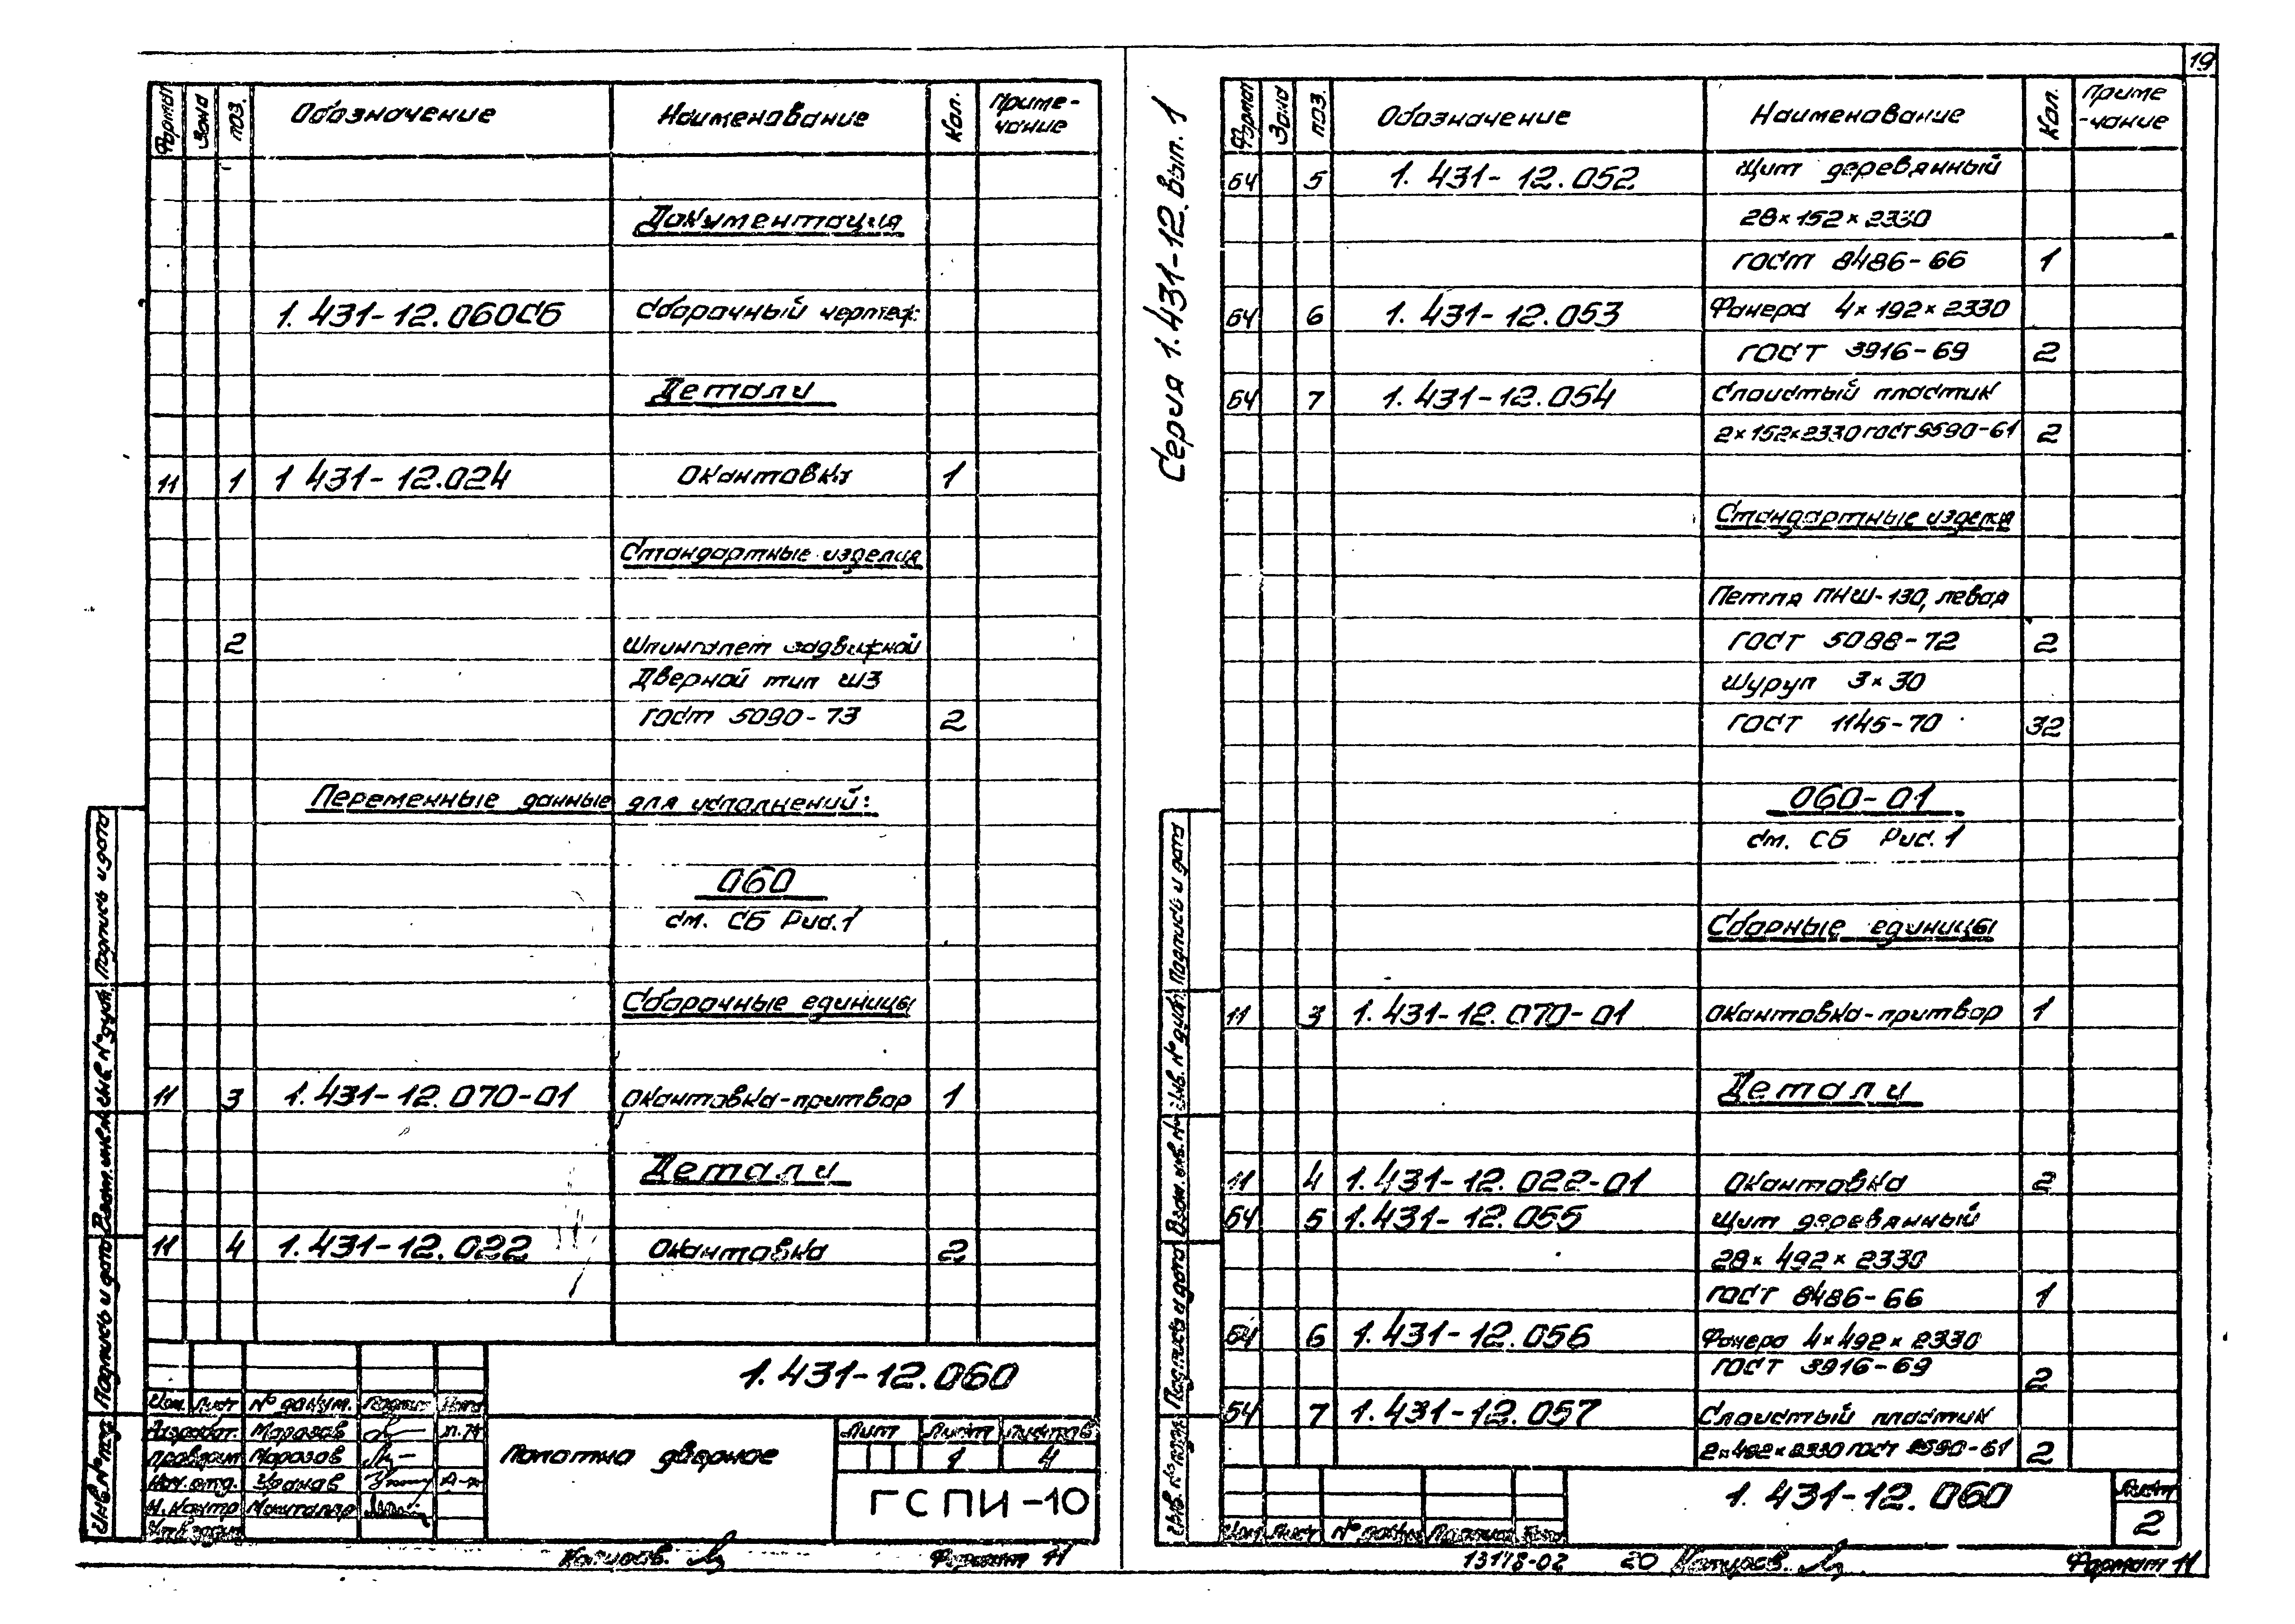 19
Формат Зона поз. Обозначение Наименование Кол. Приме-чание
Документация
1.431-12.060СБ Сборочный чертеж
Детали
11 1 1 431-12.024 Окантовка 1
Стандартные изделия
2 Шпингалет задвижной
Дверной тип ШЗ
ГОСТ 5090-73 2
Переменные данные для исполнений:
060
см. СБ Рис.1
Сборочные единицы
11 3 1.431-12.070-01 Окантовка-притвор 1
Детали
11 4 1.431-12.022 Окантовка 2
1.431-12.060
Изм. Лист № докум. Подпись Дата
Разработ. Морозов
Проверил Морозов
Нач. отд.
Н. контр
Утвердил
Полотно дверное
Лит Лист Листов
1 4
ГСПИ-10
Копиров.
Формат 11
Инв. № подл. Подпись и дата Взам. инв. № Инв. № дубл. Подпись и дата
Серия 1.431-12. Вып. 1
Формат Зона поз. Обозначение Наименование Кол. Приме-чание
БЧ 5 1.431-12.052 Щит деревянный
28×152×2330
ГОСТ 8486-66 1
БЧ 6 1.431-12.053 Фанера 4×192×2330
ГОСТ 3916-69 2
БЧ 7 1.431-12.054 Слоистый пластик
2×152×2330 ГОСТ 9590-61 2
Стандартные изделия
Петля ПНШ-130, левая
ГОСТ 5088-72 2
Шуруп 3×30
ГОСТ 1145-70 32
060-01
см. СБ Рис.1
Сборные единицы
11 3 1.431-12.070-01 Окантовка-притвор 1
Детали
11 4 1.431-12.022-01 Окантовка 2
БЧ 5 1.431-12.055 Щит деревянный
28×492×2330
ГОСТ 8486-66 1
БЧ 6 1.431-12.056 Фанера 4×492×2330
ГОСТ 3916-69 2
БЧ 7 1.431-12.057 Слоистый пластик
2×492×2330 ГОСТ 9590-61 2
1.431-12.060
Лист
2
Изм Лист № докум Подпись Дата
13178-02 20 Копиров.
Формат 11
Инв. № подл. Подпись и дата Взам. инв. № Инв. № дубл. Подпись и дата